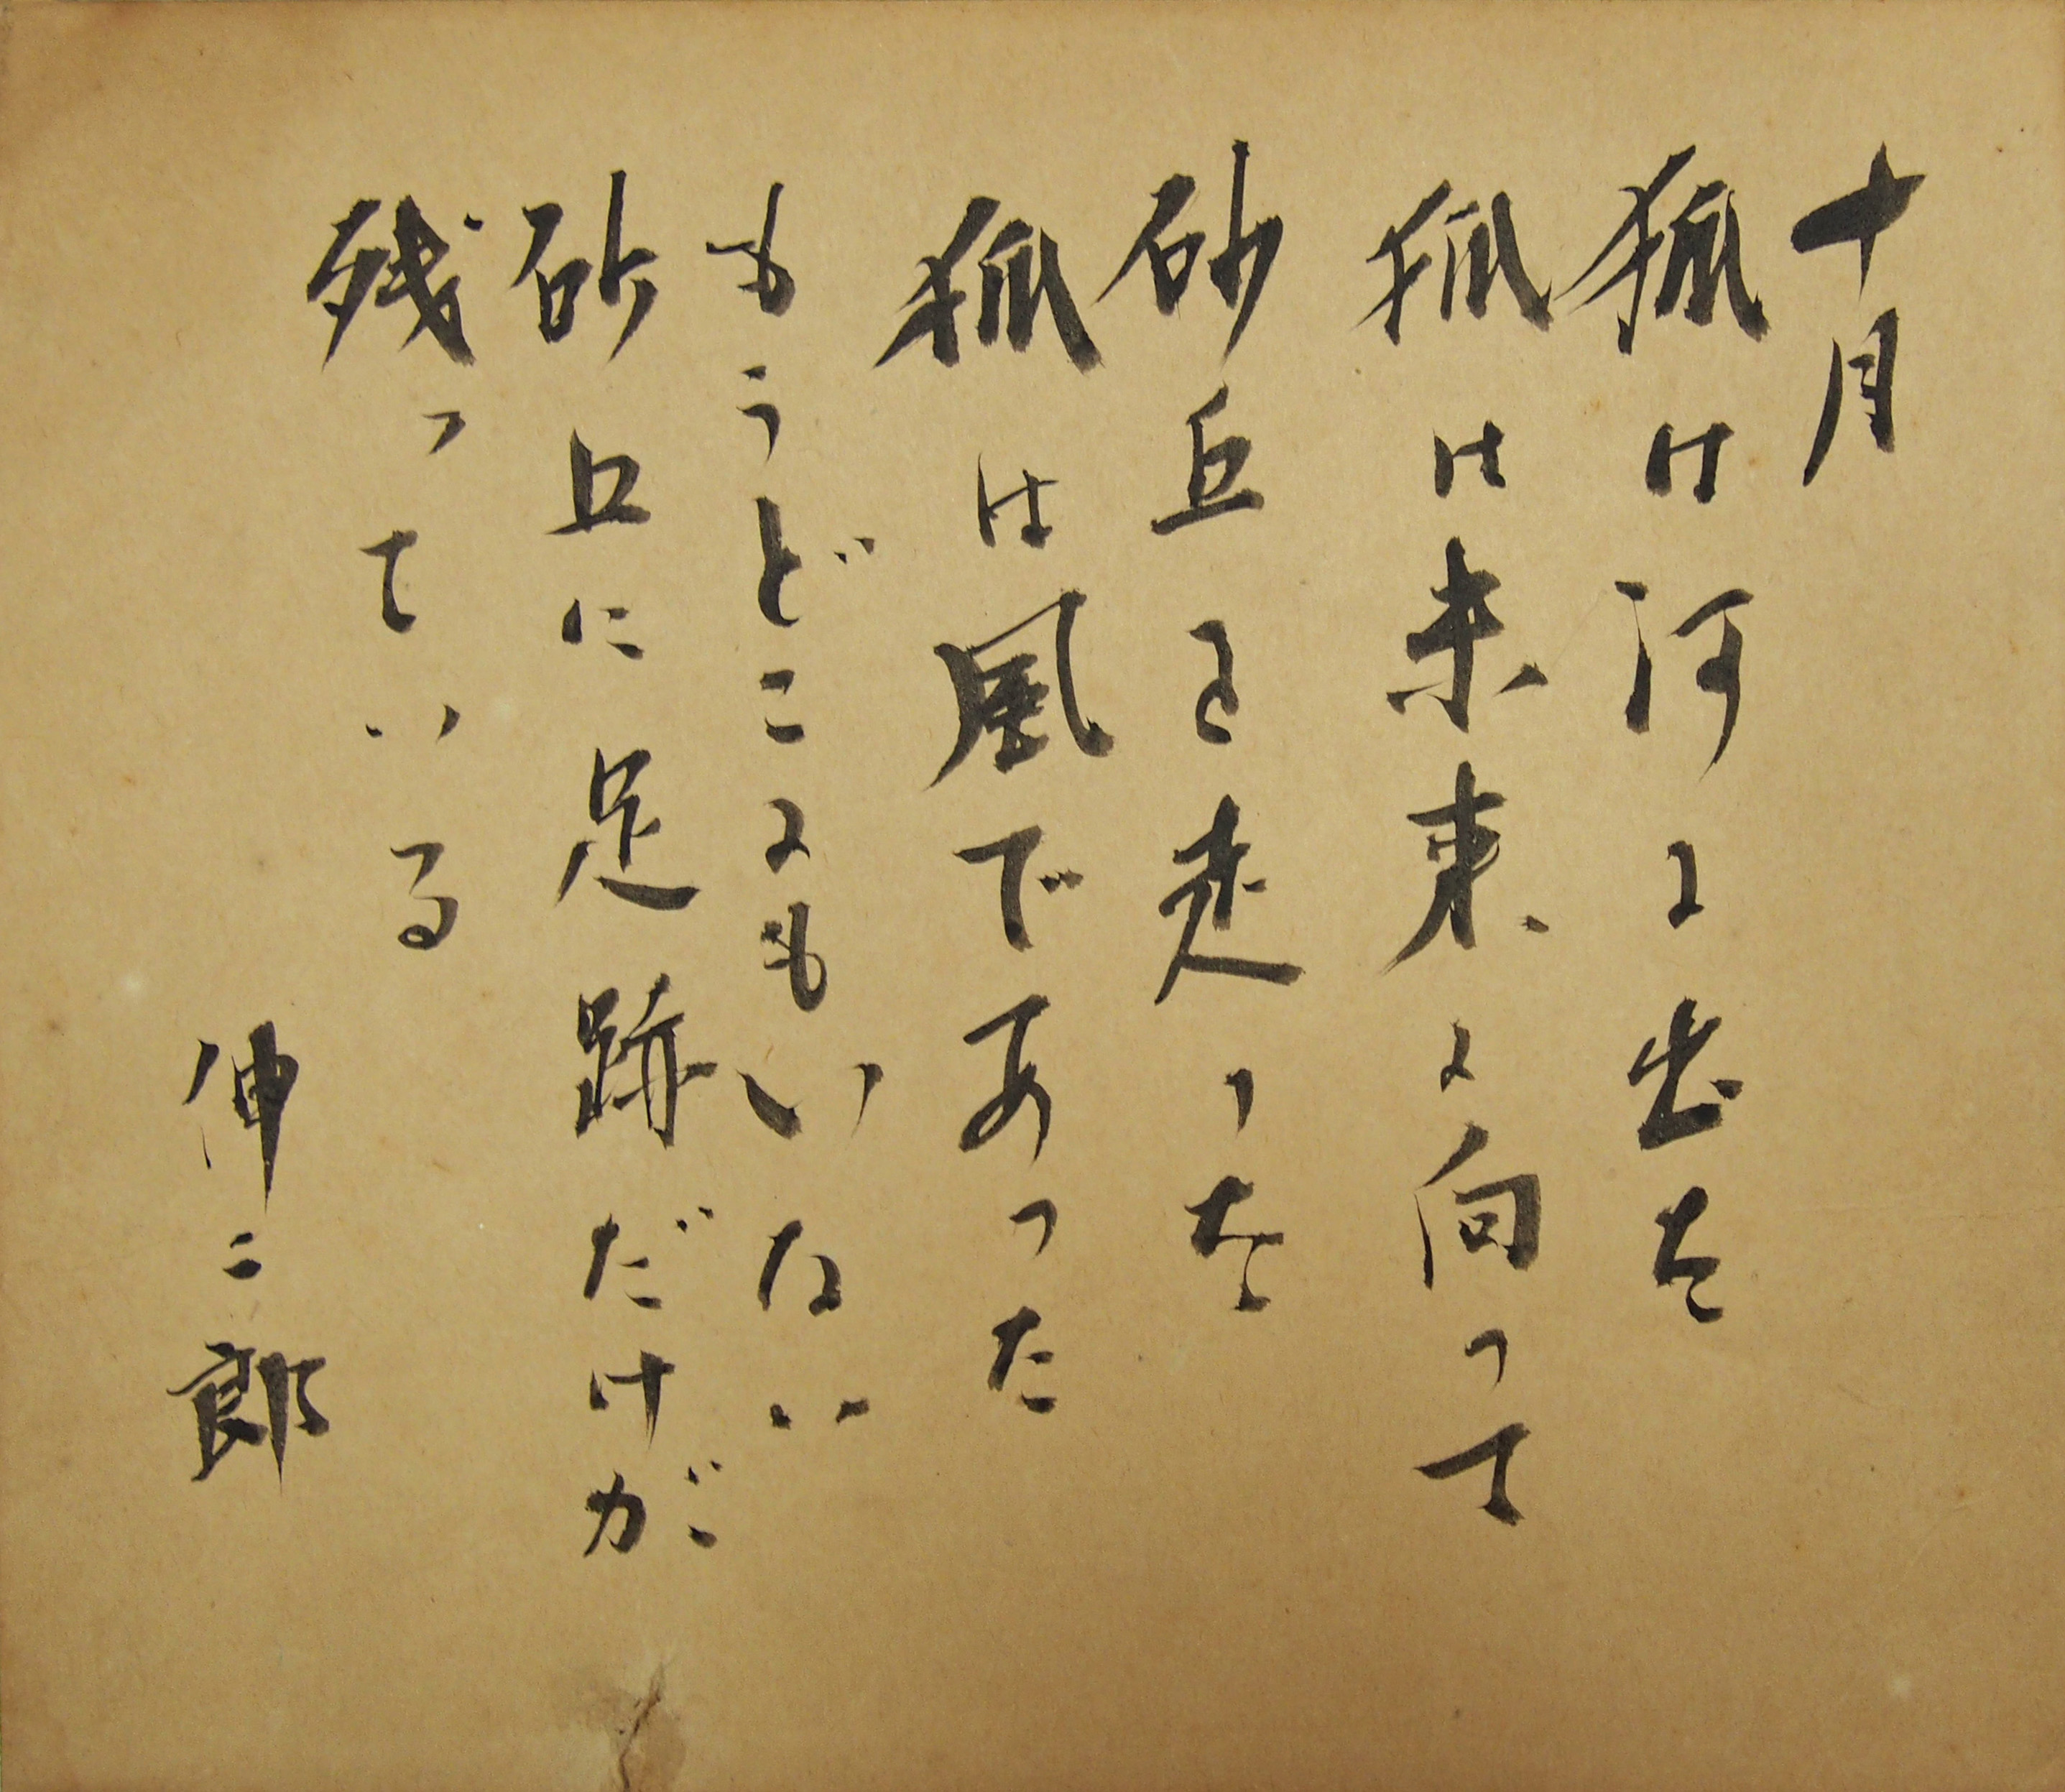 十月
狐は河に出た
狐は未来に向って
砂丘を走った
狐は風であった
もうどこにもいない
砂丘に足跡だけが
残っている
伸二郎